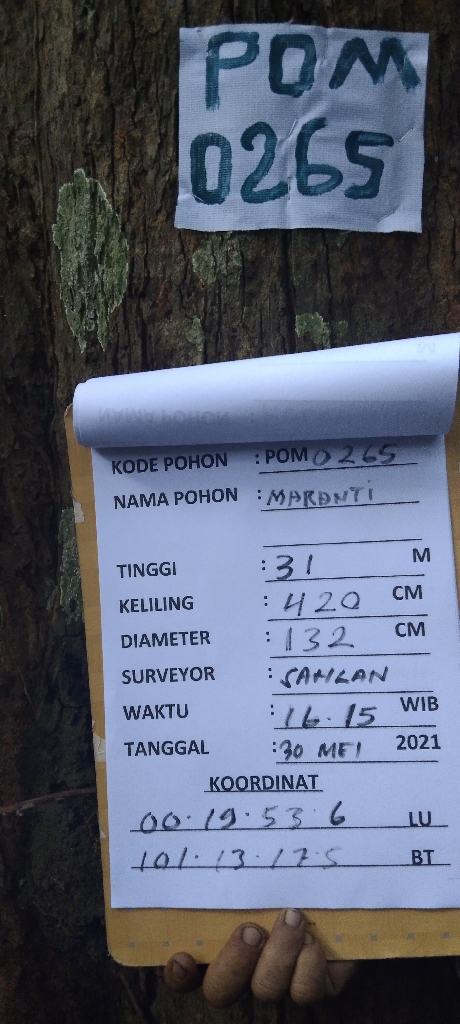 POM
0265
KODE POHON : POM 0265
NAMA POHON : MARANTI
TINGGI : 31 M
KELILING : 420 CM
DIAMETER : 132 CM
SURVEYOR : SAHLAN
WAKTU : 16.15 WIB
TANGGAL : 30 MEI 2021
KOORDINAT
00.19.53.6 LU
101.13.17.5 BT